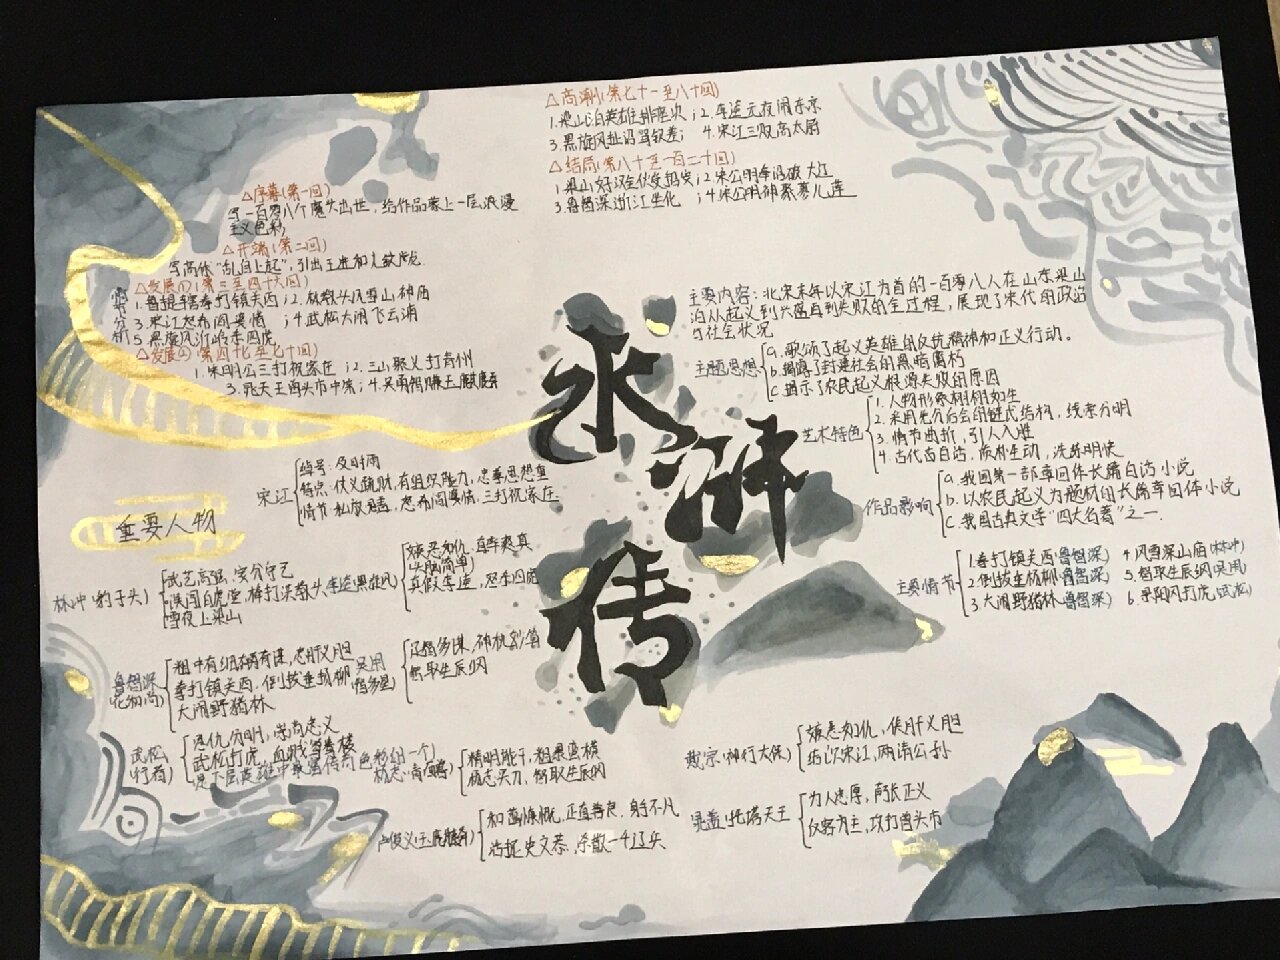 水浒传
△序幕(第一回)
写一百零八个魔头出世，给作品蒙上一层浪漫
主义色彩
△开端(第二回)
写高俅"乱自上起"，引出王进和九纹龙
△发展(1)(第三至四十六回)
1.鲁提辖拳打镇关西；2.林教头风雪山神庙
3.宋江怒杀阎婆惜；4.武松大闹飞云浦
5.黑旋风沂岭杀四虎
△发展(2)(第四十七至七十回)
1.宋明公三打祝家庄；2.三山聚义打青州
3.晁天王曾头市中箭；4.吴用智赚玉麒麟
情节分析
△高潮(第七十一至八十回)
1.梁山泊英雄排座次；2.李逵元夜闹东京
3.黑旋风扯诏骂钦差；4.宋江三败高太尉
△结局(第八十至一百二十回)
1.梁山好汉全伙受招安；2.宋公明奉诏破大辽
3.鲁智深浙江坐化；4.宋公明神聚蓼儿洼
主要内容：北宋末年以宋江为首的一百零八人在山东梁山
泊从起义到兴盛再到失败的全过程，展现了宋代的政治
与社会状况
主题思想
a.歌颂了起义英雄的反抗精神和正义行动。
b.揭露了封建社会的黑暗腐朽
c.揭示了农民起义根源失败的原因
艺术特色
1.人物形象栩栩如生
2.采用先分后合的链式结构，线索分明
3.情节曲折，引人入胜
4.古代古白话，质朴生动，洗练明快
作品影响
a.我国第一部章回体长篇白话小说
b.以农民起义为题材的长篇章回体小说
c.我国古典文学"四大名著"之一.
主要情节
1.拳打镇关西(鲁智深) 4.风雪深山庙(林冲)
2.倒拔垂杨柳(鲁智深) 5.智取生辰纲(吴用)
3.大闹野猪林(鲁智深) 6.景阳冈打虎(武松)
重要人物
宋江
绰号:及时雨
特点:仗义疏财,有组织能力,忠孝思想重
情节:私放晁盖,怒杀阎婆惜,三打祝家庄
林冲(豹子头)
武艺高强,安分守己
误闯白虎堂,棒打洪教头
雪夜上梁山
李逵(黑旋风)
嫉恶如仇,直率爽真
头脑简单
真假李逵，怒杀四虎
鲁智深
(花和尚)
粗中有细,有勇有谋,忠肝义胆
拳打镇关西,倒拔垂杨柳
大闹野猪林
吴用
(智多星)
足智多谋,神机妙算
智取生辰纲
武松
(行者)
恩仇分明,崇尚忠义
武松打虎，血溅鸳鸯楼
是下层英雄中最富传奇色彩的一个
杨志(青面兽)
精明能干,粗暴蛮横
杨志卖刀,智取生辰纲
卢俊义(玉麒麟)
和蔼慷慨,正直善良,身手不凡
活捉史文恭,杀散一千辽兵
戴宗(神行太保)
嫉恶如仇,侠肝义胆
结识宋江,两请公孙
晁盖(托塔天王)
为人忠厚,声张正义
反客为主,攻打曾头市